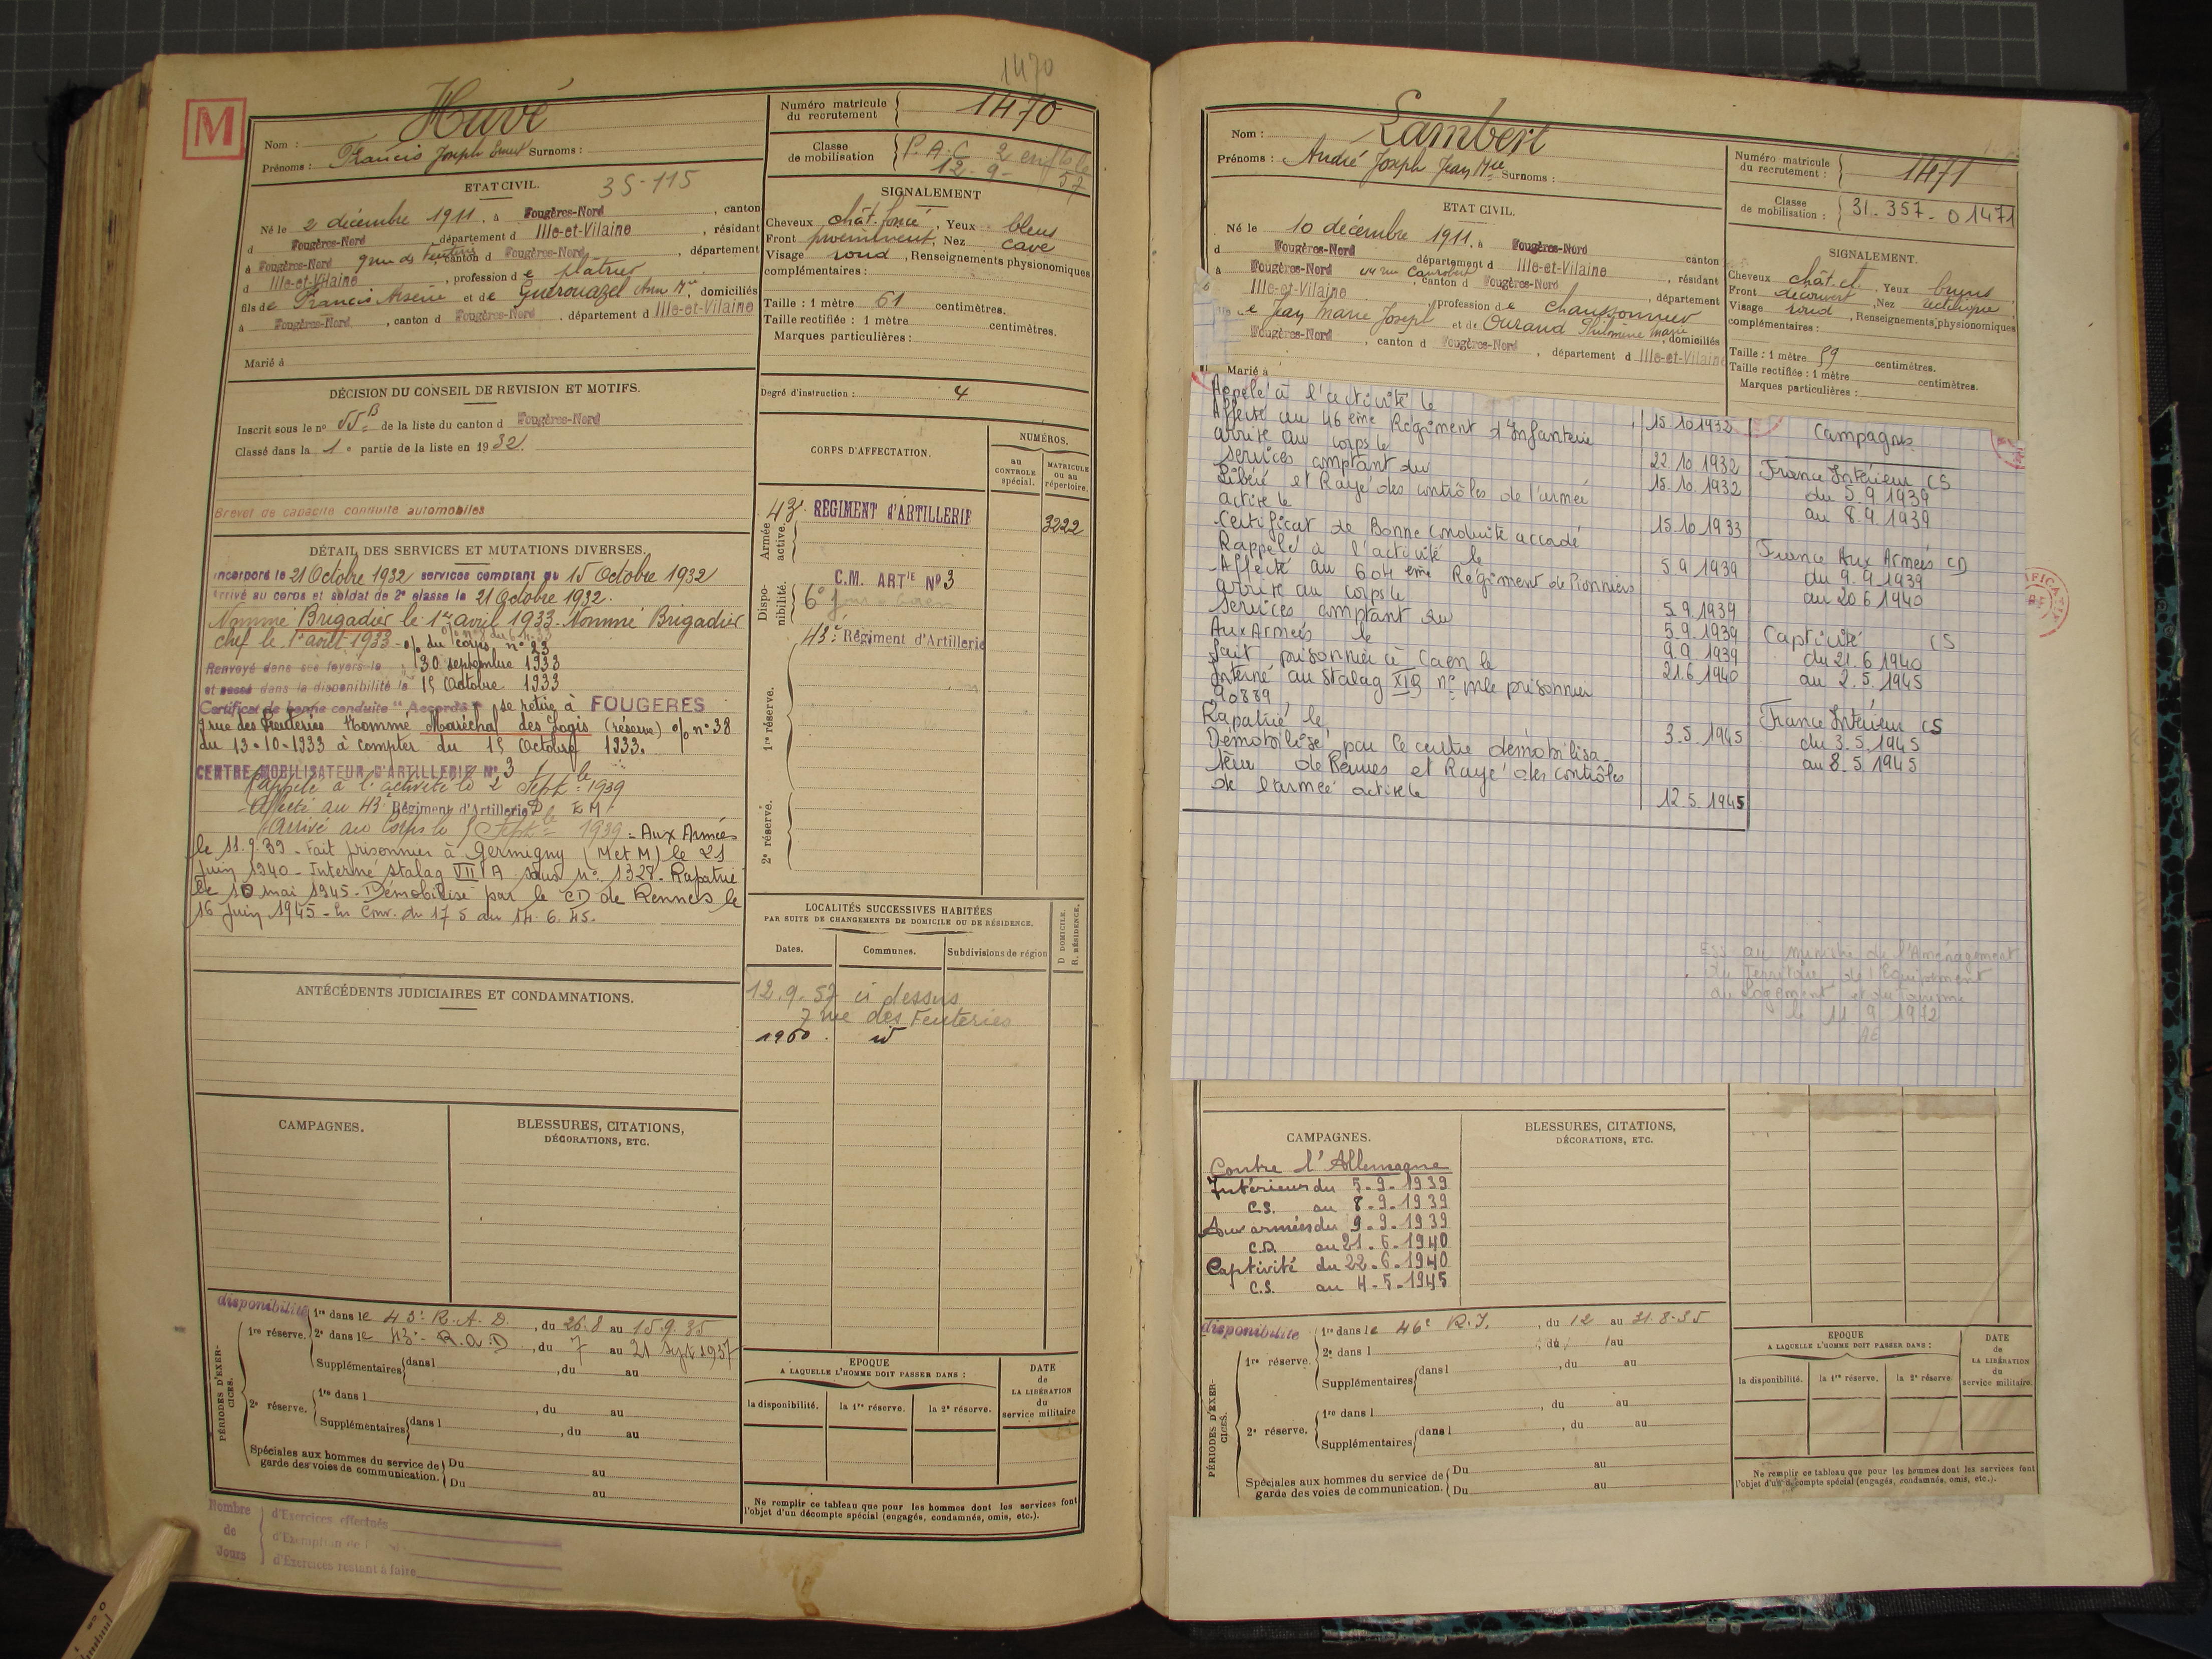 1470
M
Nom : Huvé
Prénoms : Francis Joseph Surnoms :
Numéro matricule du recrutement 1470
Classe de mobilisation P.A.C 2 enfts le 12-9-57
ETAT CIVIL. 35-115
Né le 2 décembre 1911, à Fougères-Nord, canton
d Fougères-Nord, département d Ille-et-Vilaine, résidant
à Fougères-Nord 9 rue des, canton d Fougères-Nord, département
d Ille-et-Vilaine, profession de plâtrier
fils de Francis Arsène et de Guérouazel Anne Mie, domiciliés
à Fougères-Nord, canton d Fougères-Nord, département d Ille-et-Vilaine
Marié à
SIGNALEMENT
Cheveux chât. foncé, Yeux bleus
Front proéminent, Nez cave
Visage rond, Renseignements physionomiques
complémentaires :
Taille : 1 mètre 61 centimètres.
Taille rectifiée : 1 mètre centimètres.
Marques particulières :
DÉCISION DU CONSEIL DE REVISION ET MOTIFS.
Inscrit sous le no 55 B de la liste du canton d Fougères-Nord
Classé dans la 1e partie de la liste en 1932.
Brevet de capacité conduite automobiles
Degré d'instruction : 4
CORPS D'AFFECTATION.
NUMÉROS.
au CONTROLE spécial.
MATRICULE ou au répertoire.
Armée active. 43e RÉGIMENT d'ARTILLERIE 3222
Disponibilité. C.M. ARTIE No 3
6e
43e Régiment d'Artillerie
1re réserve.
2e réserve.
DÉTAIL DES SERVICES ET MUTATIONS DIVERSES.
Incorporé le 21 Octobre 1932 services comptant du 15 Octobre 1932
Arrivé au corps et soldat de 2e classe le 21 Octobre 1932.
Nommé Brigadier le 1er avril 1933. Nommé Brigadier
chef le 1er avril 1933 - o/o du corps no 23
Renvoyé dans ses foyers le 30 septembre 1933
et passé dans la disponibilité le 15 Octobre 1933
Certificat de bonne conduite "Accordé" se retire à FOUGERES
9 rue des Feuteries Nommé Maréchal des Logis (réserve) o/o no 38
du 13-10-1933 à compter du 15 Octobre 1933.
CENTRE MOBILISATEUR D'ARTILLERIE No 3
Rappelé à l'activité le 2 Septbre 1939
Affecté au 43e Régiment d'Artillerie D E M.
Arrivé au Corps le 5 Septbre 1939 - Aux Armées
le 11.9.39 - Fait prisonnier à Germigny (M et M) le 21
Juin 1940 - Interné Stalag VII A sous no 1328 - Rapatrié
le 10 mai 1945 - Démobilisé par le CD de Rennes le
16 Juin 1945 - En Conv. du 17 5 au 14.6.45.
ANTÉCÉDENTS JUDICIAIRES ET CONDAMNATIONS.
LOCALITÉS SUCCESSIVES HABITÉES
PAR SUITE DE CHANGEMENTS DE DOMICILE OU DE RÉSIDENCE.
D. DOMICILE. R. RÉSIDENCE.
Dates. Communes. Subdivisions de région
12.9.57 ci dessus
7 rue des Feuteries
1960. id
CAMPAGNES.
BLESSURES, CITATIONS, DÉCORATIONS, ETC.
disponibilité
PÉRIODES D'EXERCICES.
1re réserve. 1re dans le 43e R.A.D., du 26.8 au 15.9.35
2e dans le 43e R.A.D, du 7 au 21 Sept 1937
Supplémentaires dans l, du au
2e réserve. 1re dans l, du au
Supplémentaires dans l, du au
Spéciales aux hommes du service de garde des voies de communication. Du au
Du au
EPOQUE
A LAQUELLE L'HOMME DOIT PASSER DANS :
la disponibilité. la 1re réserve. la 2e réserve.
DATE de LA LIBÉRATION du service militaire
Ne remplir ce tableau que pour les hommes dont les services font
l'objet d'un décompte spécial (engagés, condamnés, omis, etc.).
Nombre de Jours
d'Exercices effectués
d'Exercices restant à faire
Nom : Lambert
Prénoms : André Joseph Jean Mie Surnoms :
Numéro matricule du recrutement : 1471
Classe de mobilisation : 31-357-01471
ETAT CIVIL.
Né le 10 décembre 1911, à Fougères-Nord
d Fougères-Nord département d Ille-et-Vilaine canton
à Fougères-Nord 44 rue Canrobert, canton d Fougères-Nord, résidant
Ille-et-Vilaine, profession de chaussonnier, département
de Jean Marie Joseph et de Durand Philomène Marie, domiciliés
Fougères-Nord, canton d Fougères-Nord, département d Ille-et-Vilaine
Marié à
SIGNALEMENT.
Cheveux chât. cl, Yeux bruns
Front découvert, Nez rectiligne
Visage rond, Renseignements physionomiques
complémentaires :
Taille : 1 mètre 59 centimètres.
Taille rectifiée : 1 mètre centimètres.
Marques particulières :
Appelé à l'activité le 15.10.1932
Affecté au 46ème Régiment d'Infanterie
arrivé au corps le 22.10.1932
services comptant du 15.10.1932
Libéré et Rayé des contrôles de l'armée
active le 15.10.1933
Certificat de Bonne Conduite accordé
Rappelé à l'activité le 5.9.1939
Affecté au 604ème Régiment de Pionniers
arrivé au corps le 5.9.1939
Services comptant du 5.9.1939
Aux Armées le 9.9.1939
fait prisonnier à Caen le 21.6.1940
Interné au Stalag XIB no mle prisonnier
90889
Rapatrié le 3.5.1945
Démobilisé par le centre démobilisa-
teur de Rennes et Rayé des contrôles
de l'armée active le 12.5.1945
Campagnes
France Intérieur CS
du 5.9.1939
au 8.9.1939
France Aux Armées CD
du 9.9.1939
au 20.6.1940
Captivité CS
du 21.6.1940
au 2.5.1945
France Intérieur CS
du 3.5.1945
au 8.5.1945
au ministre de l'Aménagement
du Territoire de l'Equipement
du Logement et du Tourisme
CAMPAGNES.
Contre l'Allemagne
Intérieur du 5-9-1939
C.S. au 8-9-1939
Aux armées du 9-9-1939
C.D. au 21-6-1940
Captivité du 22-6-1940
C.S. au 4-5-1945
BLESSURES, CITATIONS, DÉCORATIONS, ETC.
disponibilité
PÉRIODES D'EXERCICES.
1re réserve. 1re dans le 46e R.I., du 12 au 31-8-35
2e dans l, du au
Supplémentaires dans l, du au
2e réserve. 1re dans l, du au
Supplémentaires dans l, du au
Spéciales aux hommes du service de garde des voies de communication. Du au
Du au
EPOQUE
A LAQUELLE L'HOMME DOIT PASSER DANS :
la disponibilité. la 1re réserve. la 2e réserve
DATE de LA LIBÉRATION du service militaire.
Ne remplir ce tableau que pour les hommes dont les services font
l'objet d'un décompte spécial (engagés, condamnés, omis, etc.).